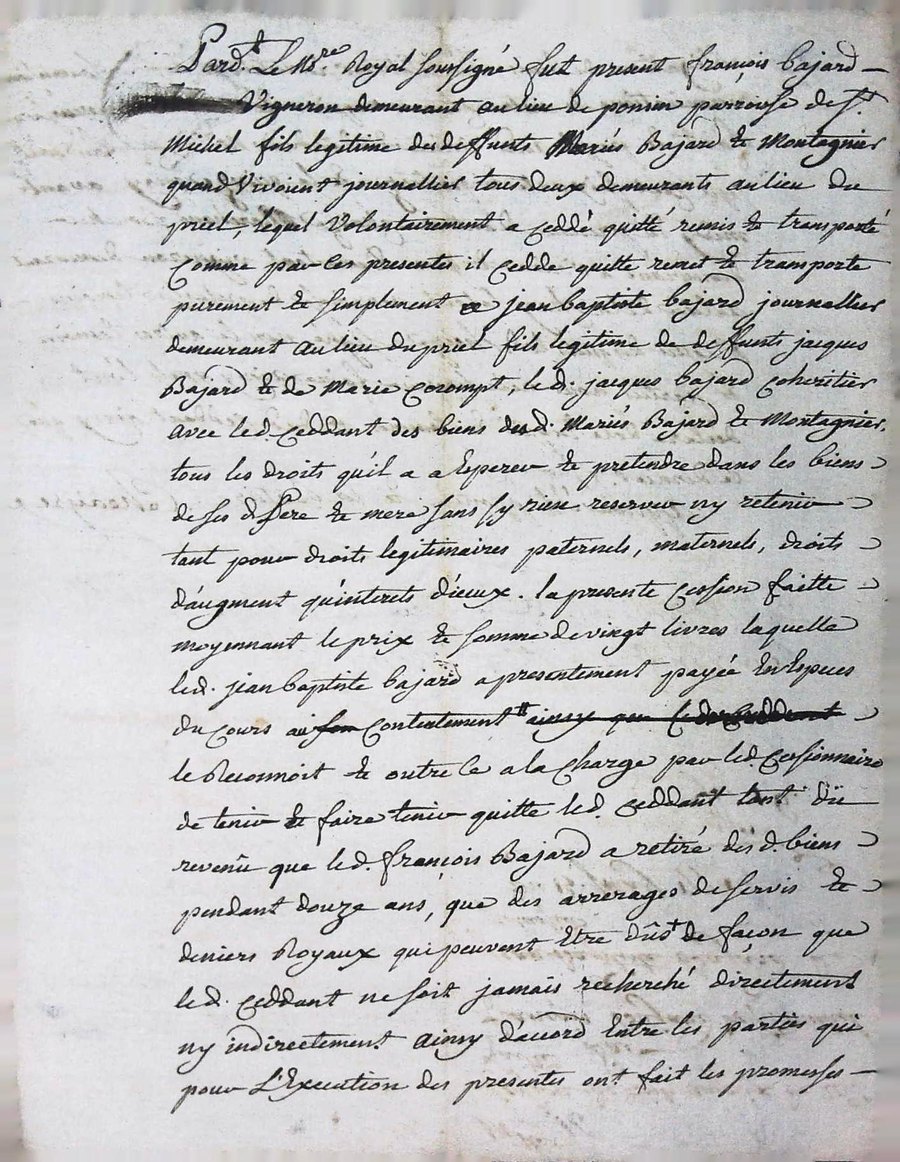 Pard.t Le No.re Royal soussigné fut present françois bajard
Vigneron demeurant au lieu de ponsin parroisse de S.t
Michel fils legitime des deffunts Mariés Bajard & Montagnier
quand Vivoient journallier tous deux demeurants au lieu du
priel, lequel Volontairement a ceddé quitté remis & transporté
comme par les presentes il cedde quitte remet & transporte
purement & simplement a jean baptiste bajard journallier
demeurant au lieu du priel fils legitime de deffunts jacques
Bajard & de Marie corompt, led. jacques bajard coheritier
avec led. ceddant des biens desd. Mariés Bajard & Montagnier.
tous les droits qu'il a a Esperer & pretendre dans les biens
de ses d. Pere & mere sans sy rien reserver ny retenir
tant pour droits legitimaires paternels, maternels, droits
d'augment qu'interets d'ieux. la presente cession faitte
moyennant le prix & somme de vingt livres laquelle
led. jean baptiste bajard a presentement payée En Especes
du cours au son contentement ainsy que led. ceddant
le Reconnoit & outre ce a la charge par led. cessionnaire
de tenir & faire tenir quitte led. ceddant tant dü
revenû que led. françois Bajard a retiré des d. biens
pendant douze ans, que des arrerages de servis &
deniers Royaux qui peuvent Etre dûs de façon que
led. ceddant ne soit jamais recherché directement
ny indirectement ainsy d'acord Entre les parties qui
pour L'Execution des presentes ont fait les promesses